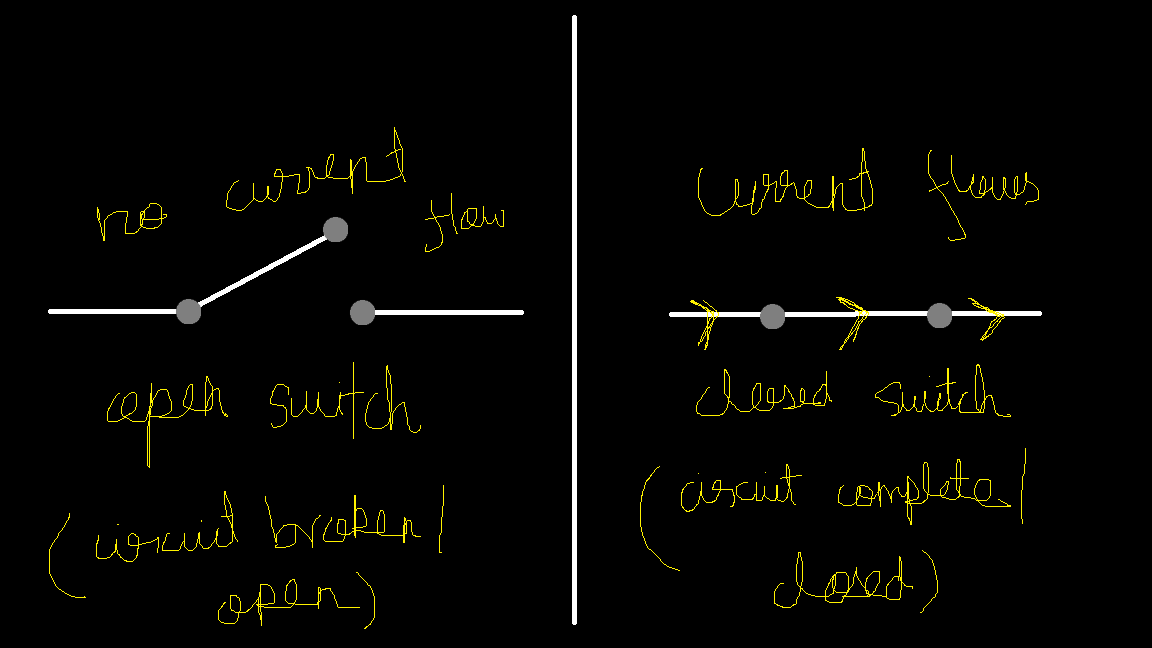 no current flow
open switch
(circuit broken/
open)
current flows
closed switch
(circuit complete/
closed)